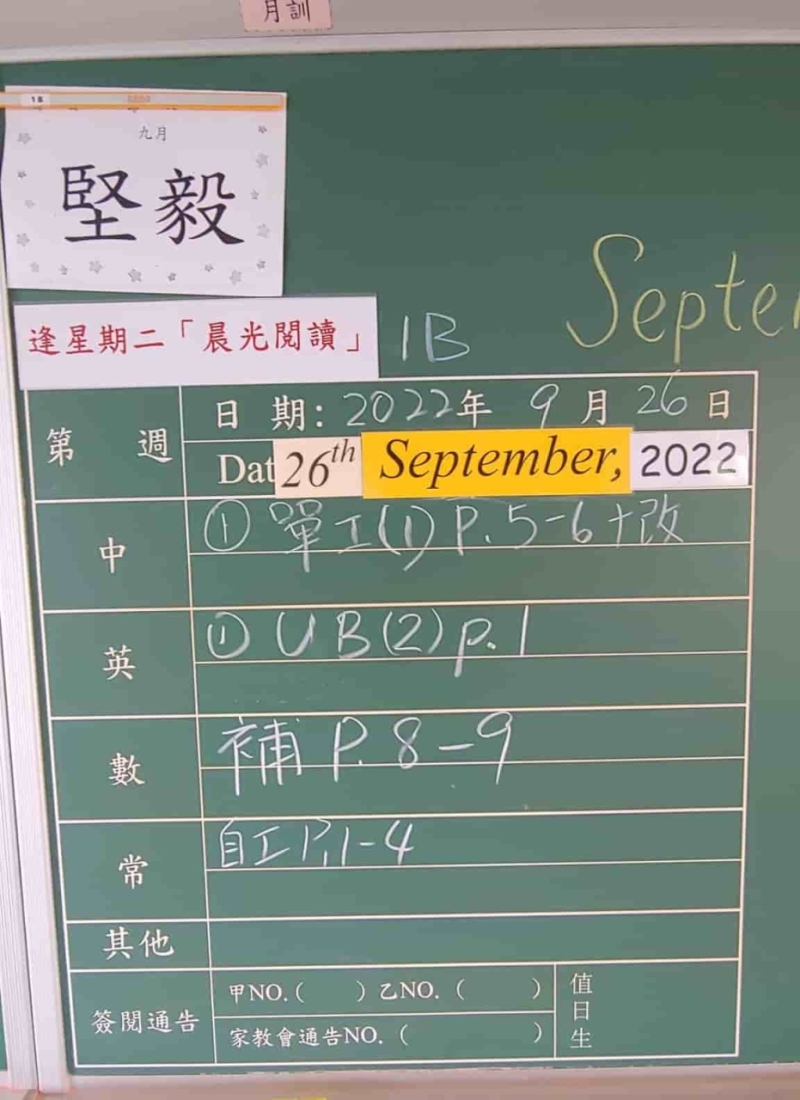 月訓
九月
堅毅
逢星期二「晨光閱讀」
1B
Septe
第 週
日 期: 2022年 9月 26日
Dat 26th September, 2022
中
① 單工(1) P.5-6+改
英
① UB(2) p.1
數
補 P.8-9
常
自工 P.1-4
其他
簽閱通告
甲NO.( )乙NO.( )
家教會通告NO.( )
值日生